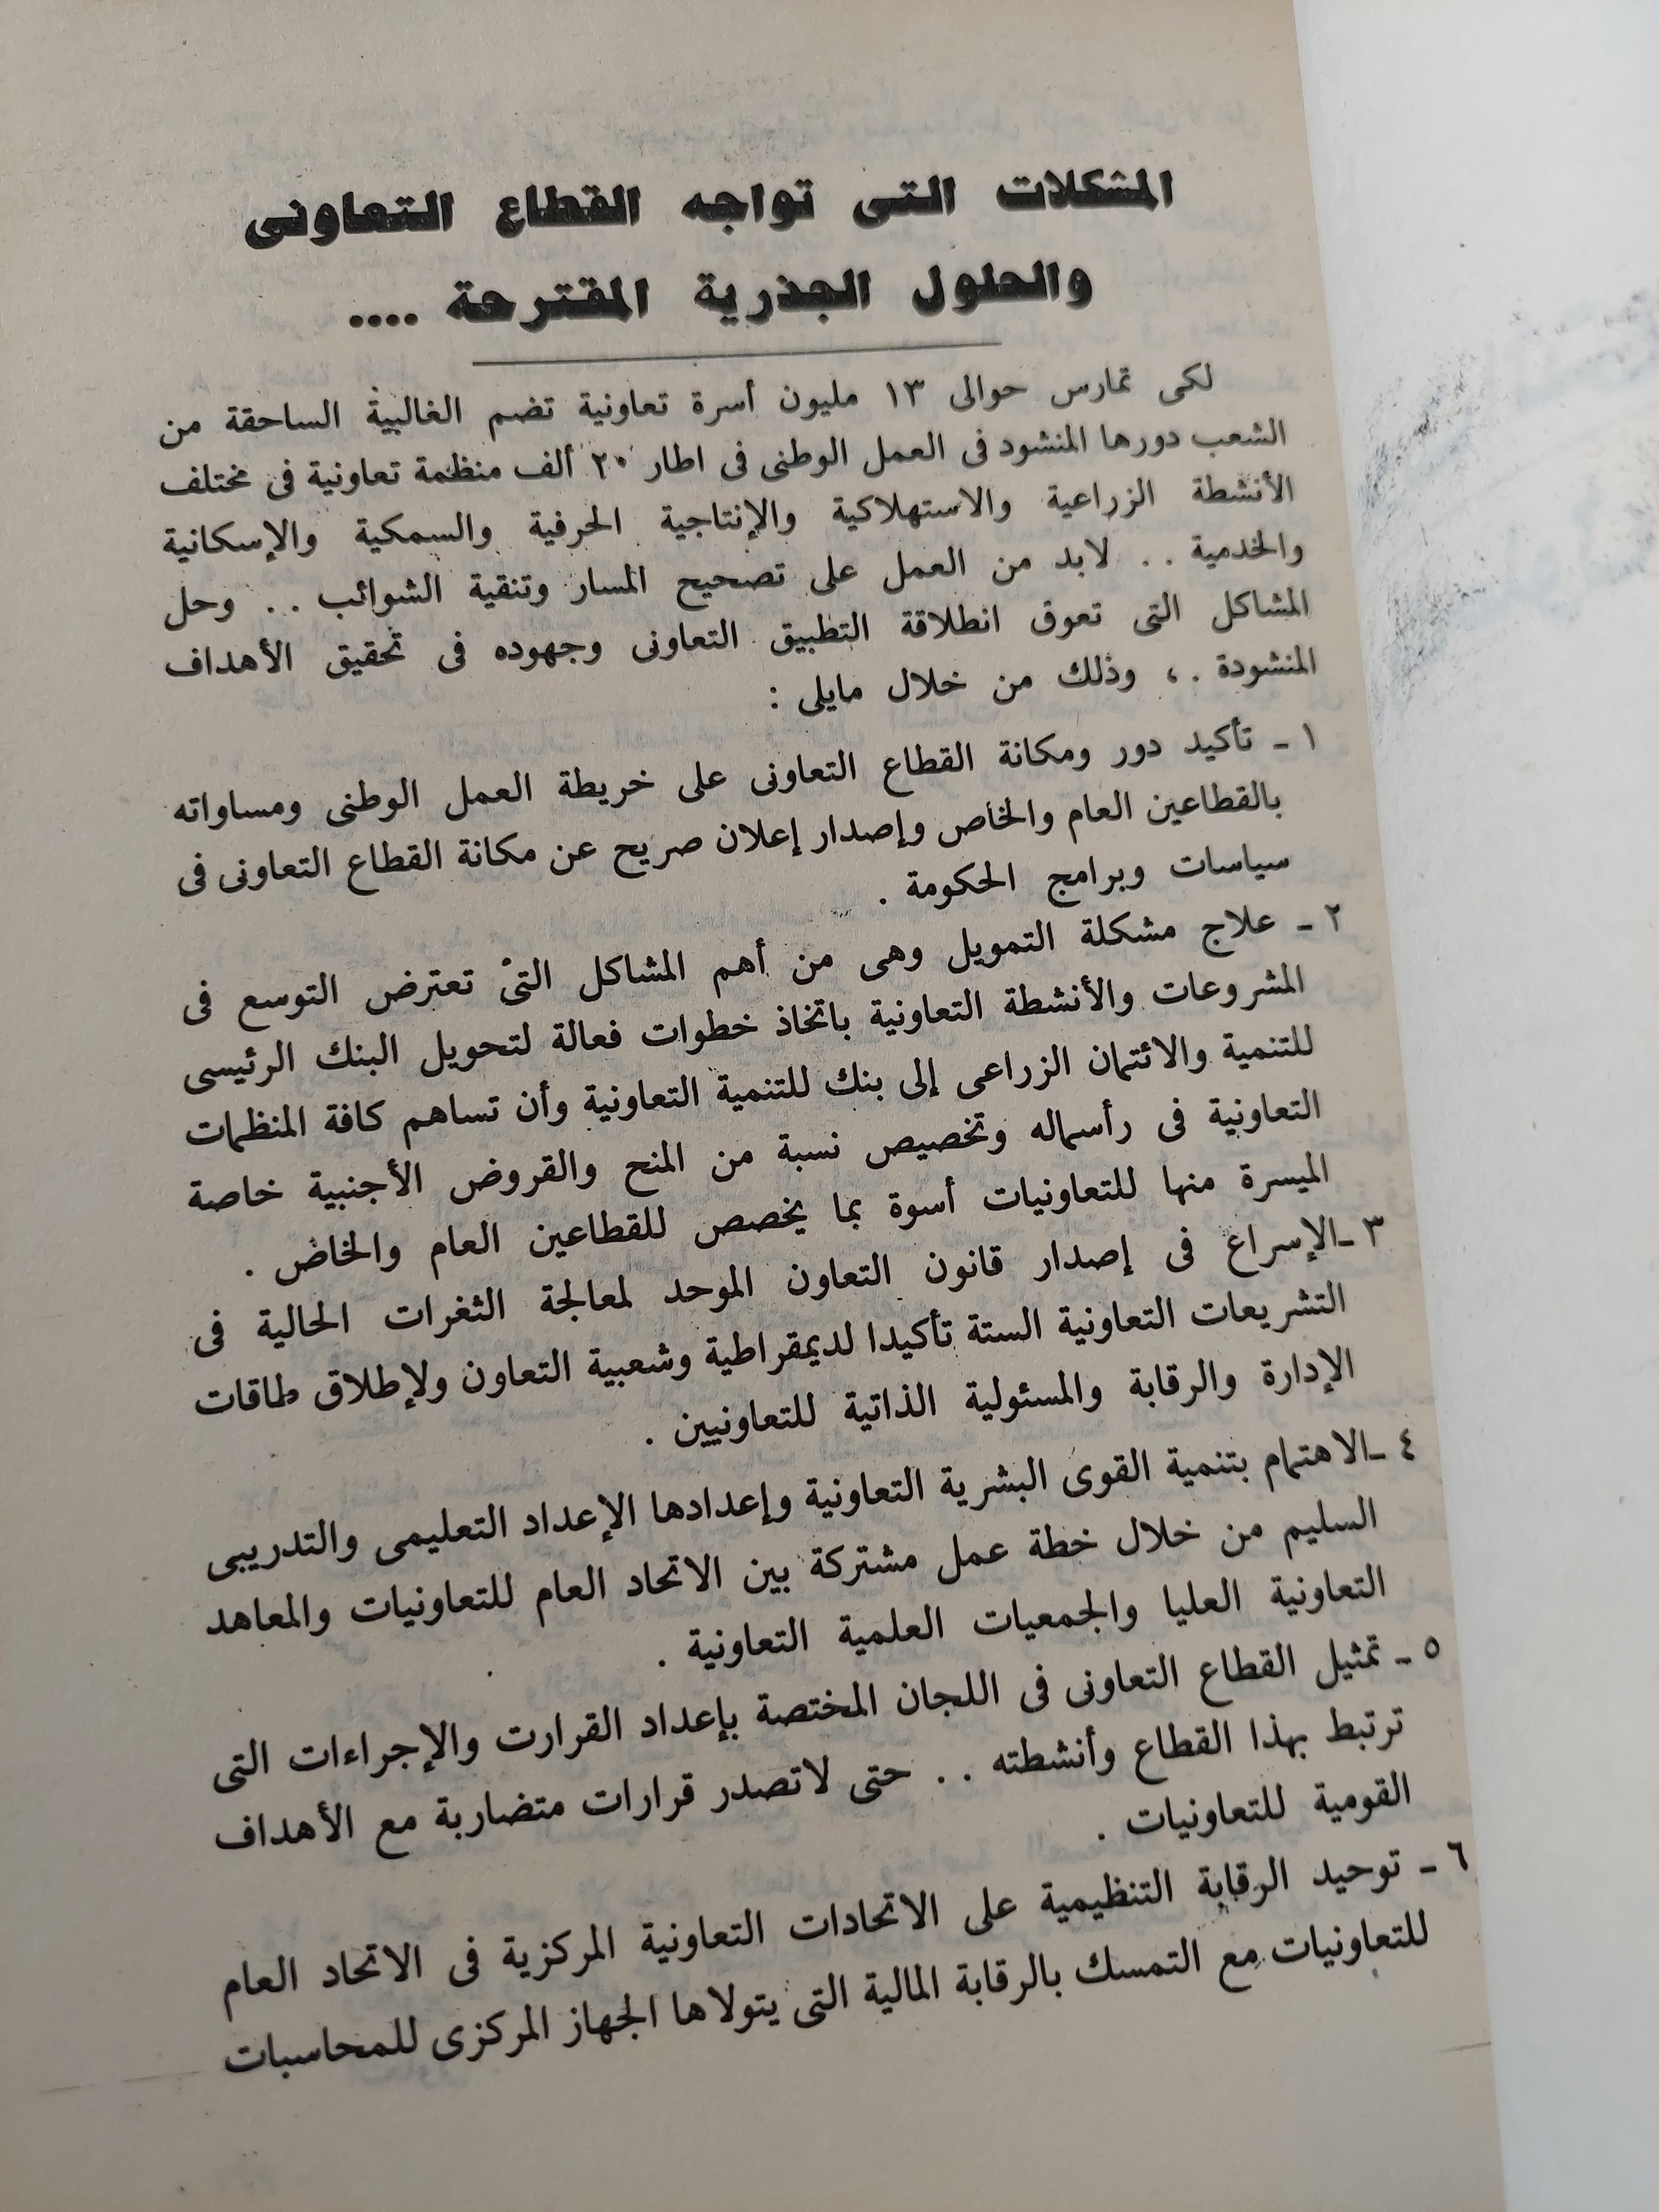 المشكلات التى تواجه القطاع التعاونى
والحلول الجذرية المقترحة ....
لكى تمارس حوالى ١٣ مليون أسرة تعاونية تضم الغالبية الساحقة من
الشعب دورها المنشود فى العمل الوطنى فى اطار ٢٠ ألف منظمة تعاونية فى مختلف
الأنشطة الزراعية والاستهلاكية والإنتاجية الحرفية والسمكية والإسكانية
والخدمية .. لابد من العمل على تصحيح المسار وتنقية الشوائب .. وحل
المشاكل التى تعوق انطلاقة التطبيق التعاونى وجهوده فى تحقيق الأهداف
المنشودة .، وذلك من خلال مايلى :
١ ـ تأكيد دور ومكانة القطاع التعاونى على خريطة العمل الوطنى ومساواته
بالقطاعين العام والخاص وإصدار إعلان صريح عن مكانة القطاع التعاونى فى
سياسات وبرامج الحكومة .
٢ ـ علاج مشكلة التمويل وهى من أهم المشاكل التى تعترض التوسع فى
المشروعات والأنشطة التعاونية باتخاذ خطوات فعالة لتحويل البنك الرئيسى
للتنمية والائتمان الزراعى إلى بنك للتنمية التعاونية وأن تساهم كافة المنظمات
التعاونية فى رأسماله وتخصيص نسبة من المنح والقروض الأجنبية خاصة
الميسرة منها للتعاونيات أسوة بما يخصص للقطاعين العام والخاض .
٣ ـ الإسراع فى إصدار قانون التعاون الموحد لمعالجة الثغرات الحالية فى
التشريعات التعاونية الستة تأكيدا لديمقراطية وشعبية التعاون ولإطلاق طاقات
الإدارة والرقابة والمسئولية الذاتية للتعاونيين .
٤ ـ الاهتمام بتنمية القوى البشرية التعاونية وإعدادها الإعداد التعليمى والتدريبى
السليم من خلال خطة عمل مشتركة بين الاتحاد العام للتعاونيات والمعاهد
التعاونية العليا والجمعيات العلمية التعاونية .
٥ ـ تمثيل القطاع التعاونى فى اللجان المختصة بإعداد القرارت والإجراءات التى
ترتبط بهذا القطاع وأنشطته .. حتى لاتصدر قرارات متضاربة مع الأهداف
القومية للتعاونيات .
٦ ـ توحيد الرقابة التنظيمية على الاتحادات التعاونية المركزية فى الاتحاد العام
للتعاونيات مع التمسك بالرقابة المالية التى يتولاها الجهاز المركزى للمحاسبات